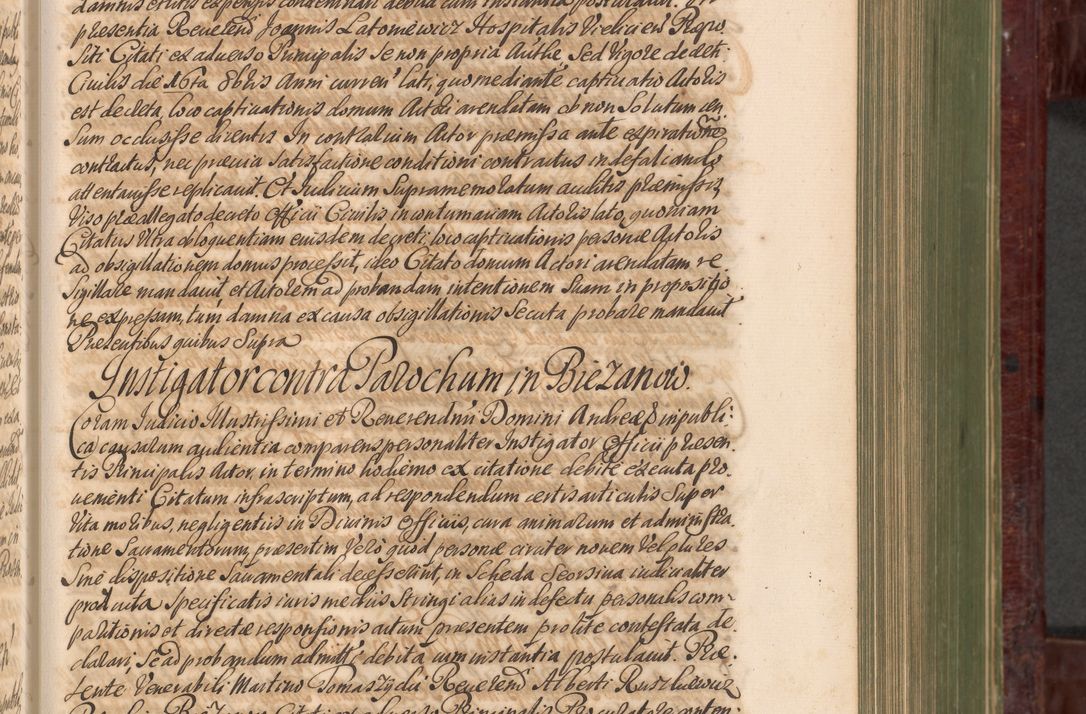 damnis et litis expensis condemnari debita cum instantia postulavit. In
præsentia Reverend Joannis Latomiewicz Hospitalis Vielicien Præpo
siti Citati ex adverso Principalis se non propria Authe, sed Vigore decreti
Civilis die 16ta 8bris Anni curren lati, quo mediante captivatio Actoris
est decreta, loco captivationis domum Actori arendatam ob non Solutum cen
sum occlusisse dicentis In contrarium Actor præmissa ante expirationem
contractus, nec prævia satisfactione conditioni contractus in defalcando
attentavisse replicavit. Et Judicium Supramemoratum auditis præmissis
Viso præallegato decreto Officii Civilis in contumaciam Actoris lato, quoniam
Citatus Ultra obloquentiam eiusdem decreti, loco captivationis personæ Actoris
ad obsigillationem domus processit, ideo Citato domum Actori arendatam re
sigillare mandavit et Actorem ad probandam intentionem Suam in propositio
ne expressam, tum damna ex causa obsigillationis Secuta probare mandavit
Præsentibus quibus Supra
Instigator contra Parochum in Bieżanow.
Coram Judicio Illustrissimi et Reverendmi Domini Andreæ & in publi:
ca causarum audientia comparens personaliter Instigator Officii præsen
tis Principalis Actor, in termino hodierno ex citatione debite executa pro
venienti Citatum infrascriptum, ad respondendum certis articulis Super
Vita moribus, negligentiis in Divinis Officiis, cura animarum et administra
tione Sacramentorum, præsertim Vero quod personæ circiter novem Vel plures
Sine dispositione Sacramentali decesserint, in Scheda Seorsiva iudicialiter
producta Specificatis iuris mediis Stringi alias in defectu personalis com
paritionis et directæ responsionis actum præsentem pro lite contestata de
clarari, Se ad probandum admitti debita cum instantia postulavit. Præ
sente Venerabili Martino Tomaszycki Reverend Alberti